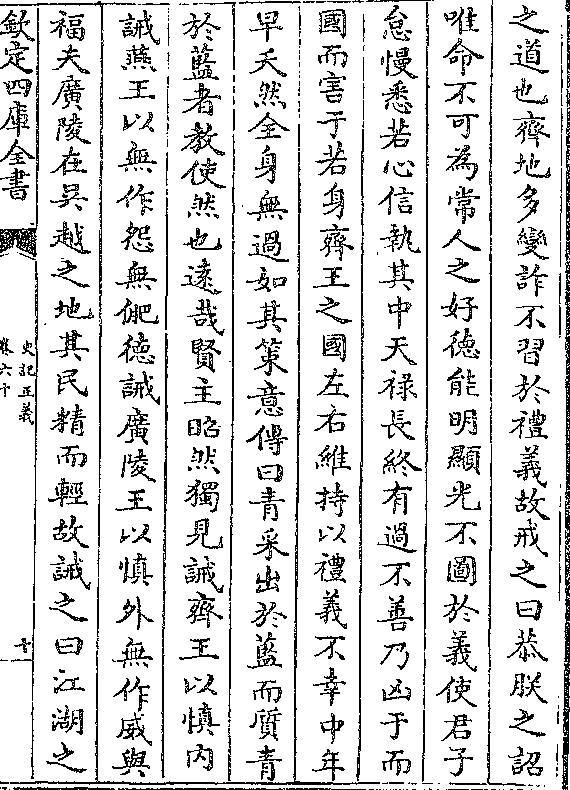 之道也齊地多變詐不習於禮義故戒之曰恭朕之詔
唯命不可為常人之好德能明顯光不圖於義使君子
怠慢悉若心信執其中天禄長終有過不善乃凶于而
國而害于若身齊王之國左右維持以禮義不幸中年
早夭然全身無過如其策意傳曰青采出於藍而質青
於藍者教使然也遠哉賢主昭然獨見誡齊王以慎内
誡燕王以無作怨無俷德誡廣陵王以慎外無作威與
福夫廣陵在吳越之地其民精而輕故誡之曰江湖之
欽定四庫全書
史記正義
卷六十
十